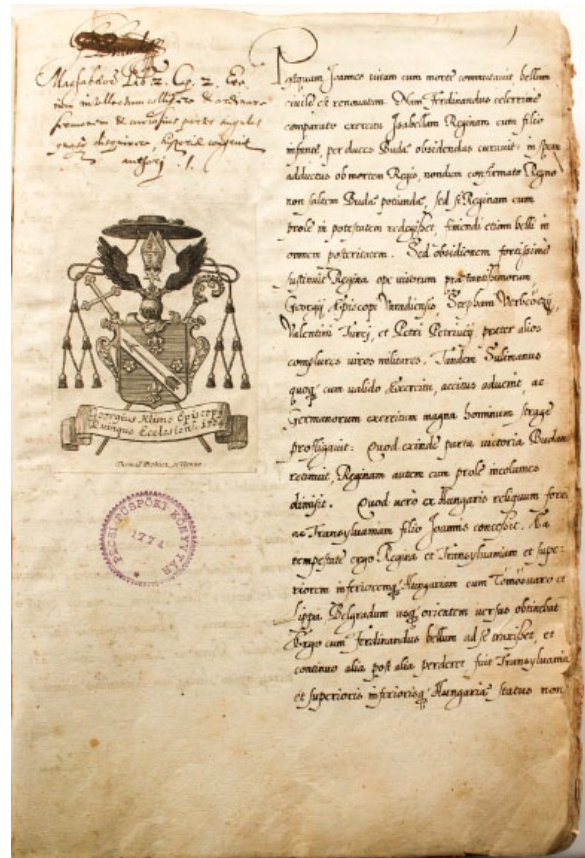 Machabeor. Lib. 2. Cap. 2.
intellectum colligere & ordinare
sermonem & curiosius partes singulas
quasque disquirere, historiæ congruit
authori. 1.
Georgius Klimo Episcop.
Quinque Ecclesiens.
PÉCSI PÜSPÖKI KÖNYVTÁR
1774
Postquam Joannes vitam cum morte commutavit bellum
civile est renovatum. Nam Ferdinandus celerrime
comparato exercitu Isabellam Reginam cum filio
infante, per duces Budæ obsidendas curavit: in spem
adductus ob mortem Regis, nondum confirmato Regno
non saltem Buda potiundæ, sed si Reginam cum
prole in potestatem redegisset, finiendi etiam belli in
omnem posteritatem. Sed obsidionem fortissime
sustinuit Regina ope virorum præstantissimorum
Georgij Episcopi Varadiensis, Stephani Verbőczij,
Valentini Turcj, et Petri Petrivitij preter alios
complures viros militares. Tandem Sulimanus
quoq; cum valido Exercitu, accitus advenit, ac
Germanorum exercitum magna hominum strage
profligavit: Quod exinde parta victoria Budam
retinuit, Reginam autem cum prole incolumes
dimisit. Quod vero ex Hungaris reliquum foret
ac Transylvaniam filio Joannis concessit. Ea
tempestate ergo Regina et Transylvaniam et supe:
riorem inferioremq; Hungariam cum Tömösvaro et
Lippa Belgradum usq; orientem versus obtinebat
Ergo cum Ferdinandus bellum ad se traxisset, et
continuo alia post alia perderet fuit Transylvaniæ
et superioris inferiorisq; Hungariæ status non